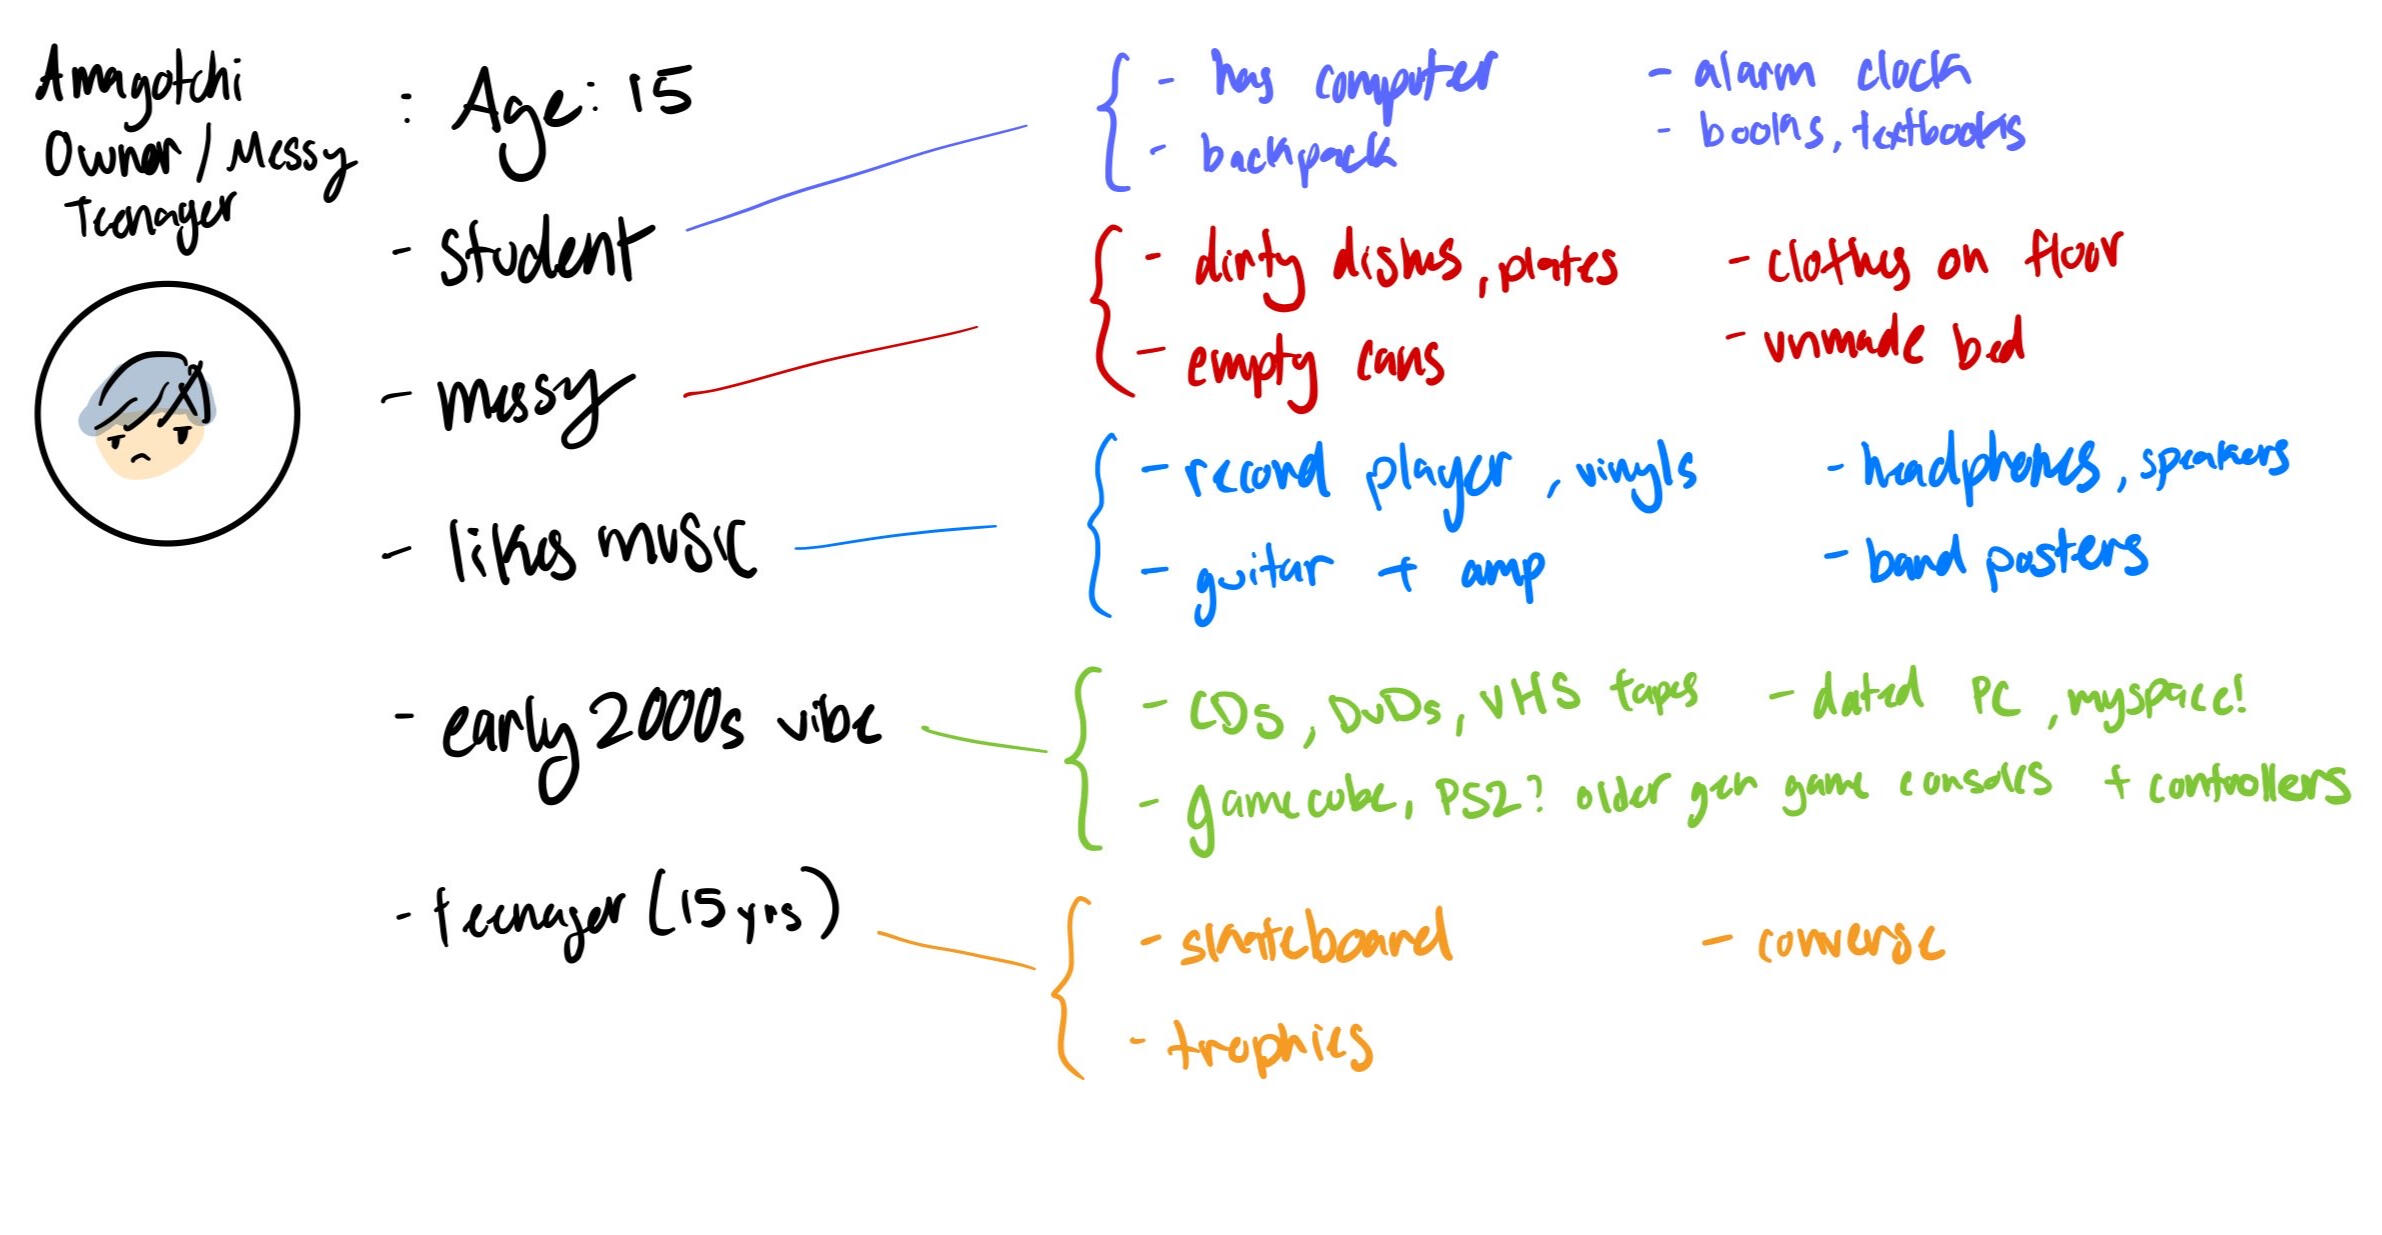 Amagotchi
Owner / Messy
Teenager
: Age: 15
- student
- messy
- likes music
- early 2000s vibe
- teenager (15 yrs)
- has computer
- backpack
- alarm clock
- books, textbooks
- dirty dishes, plates
- empty cans
- clothes on floor
- unmade bed
- record player, vinyls
- guitar + amp
- headphones, speakers
- band posters
- CDs, DVDs, VHS tapes
- dated PC, myspace!
- gamecube, PS2? older gen game consoles + controllers
- skateboard
- trophies
- converse